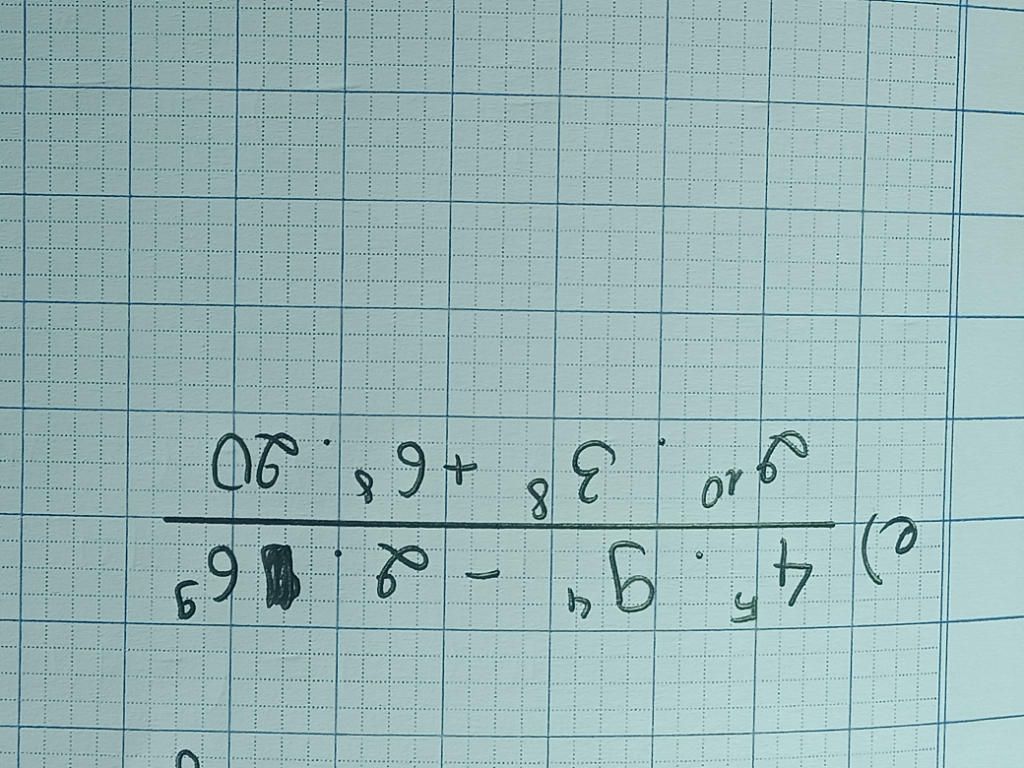 e) 4⁵ . 9⁴ - 2 . 6⁹
2¹⁰ . 3⁸ + 6⁸ . 20